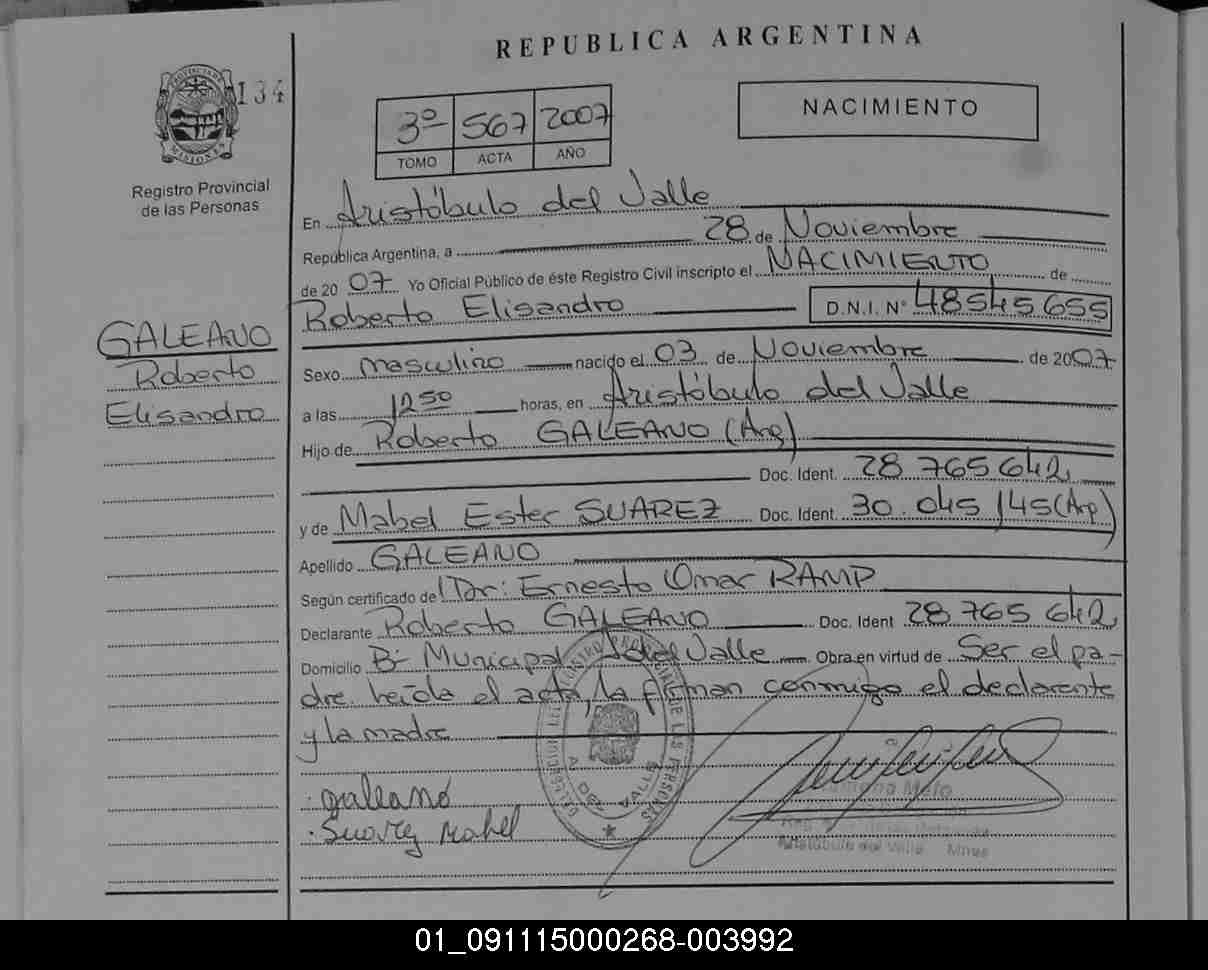 REPUBLICA ARGENTINA
PROVINCIA DE
MISIONES
134
Registro Provincial
de las Personas
3º 567 2007
TOMO ACTA AÑO
NACIMIENTO
En Aristóbulo del Valle
República Argentina, a 28 de Noviembre
de 2007 Yo Oficial Público de éste Registro Civil inscripto el NACIMIENTO de
Roberto Elisandro D.N.I. Nº 48545655
GALEANO
Roberto
Elisandro
Sexo masculino nacido el 03 de Noviembre de 2007
a las 1250 horas, en Aristóbulo del Valle
Hijo de Roberto GALEANO (Arg)
Doc. Ident. 28 765 642
y de Mabel Ester SUAREZ Doc. Ident. 30.045 145 (Arg)
Apellido GALEANO
Según certificado del Dr: Ernesto Omar RAMP
Declarante Roberto GALEANO Doc. Ident 28 765 642
Domicilio Bº Municipal, A del Valle Obra en virtud de Ser el pa-
dre. leída el acta, la firman conmigo el declarente
y la madre
galeano
Suarez Mabel
Aristóbulo del Valle Mnes
01_091115000268-003992